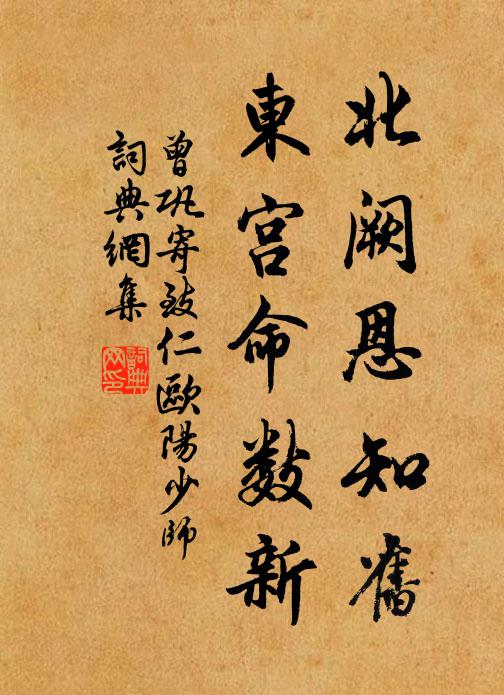 北阙恩知舊
東宫命數新
曾巩寄致仁歐陽少師
詞典網集
詞典网印